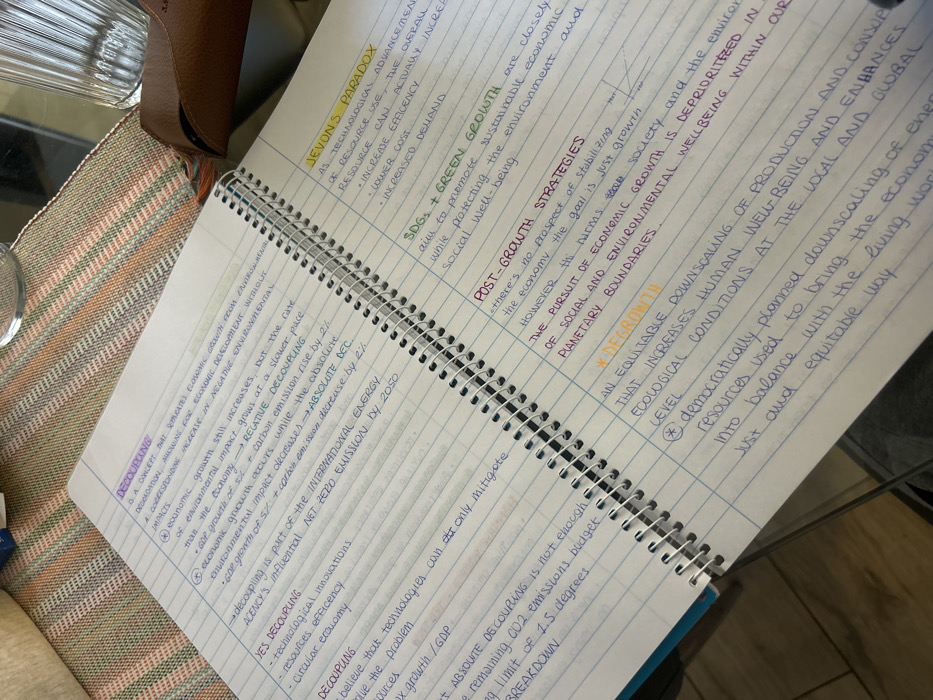 DECOUPLING
IS A CONCEPT THAT SEPARATES ECONOMIC GROWTH FROM ENVIRONMENTAL
DEGRADATION, ALLOWING FOR ECONOMIC DEVELOPMENT WITHOUT
A CORRESPONDING INCREASE IN NEGATIVE ENVIRONMENTAL
IMPACTS
* economic growth still increases but the rate
of environmental impact grows at a slower pace
than the economy → RELATIVE DECOUPLING
• GDP growth of 5% + carbon emission rise by 2%
* economic growth occurs while the absolute
environmental impact decreases → ABSOLUTE DEC.
• GDP growth of 5% + carbon emission decrease by 2%
→ decoupling is part of the INTERNATIONAL ENERGY
AGENCY'S influential NET ZERO EMISSION by 2050
YES DECOUPLING
- technological innovations
- resources efficiency
- circular economy
DECOUPLING
believe that technologies can only mitigate
the problem
growth/GDP
ABSOLUTE DECOUPLING is not enough
remaining CO2-emissions budget
limit of 1.5 degrees
BREAKDOWN
JEVON'S PARADOX
AS TECHNOLOGICAL ADVANCEMEN
OF RESOURCE USE, THE OVERALL
RESOURCE CAN ACTUALLY INCREA
• INCREASE EFFICIENCY
LOWER COST
• INCREASED DEMAND
SDGs + GREEN GROWTH
aims to promote sustainable economic
while protecting the environment and
social well-being
are closely
POST-GROWTH STRATEGIES
there's no prospect of stabilizing
the economy if the goal is just growth
HOWEVER this harms society and the environ
THE PURSUIT OF ECONOMIC GROWTH IS DEPRIORITIZED IN
OF SOCIAL AND ENVIRONMENTAL WELLBEING WITHIN OUR
PLANETARY BOUNDARIES.
* DEGROWTH
AN EQUITABLE DOWNSCALING OF PRODUCTION AND CONSUM
THAT INCREASES HUMAN WELL-BEING AND ENHANCES
ECOLOGICAL CONDITIONS AT THE LOCAL AND GLOBAL
LEVEL
* democratically planned downscaling of ener
resources used to bring the economy
into balance with the living wor
just and equitable way